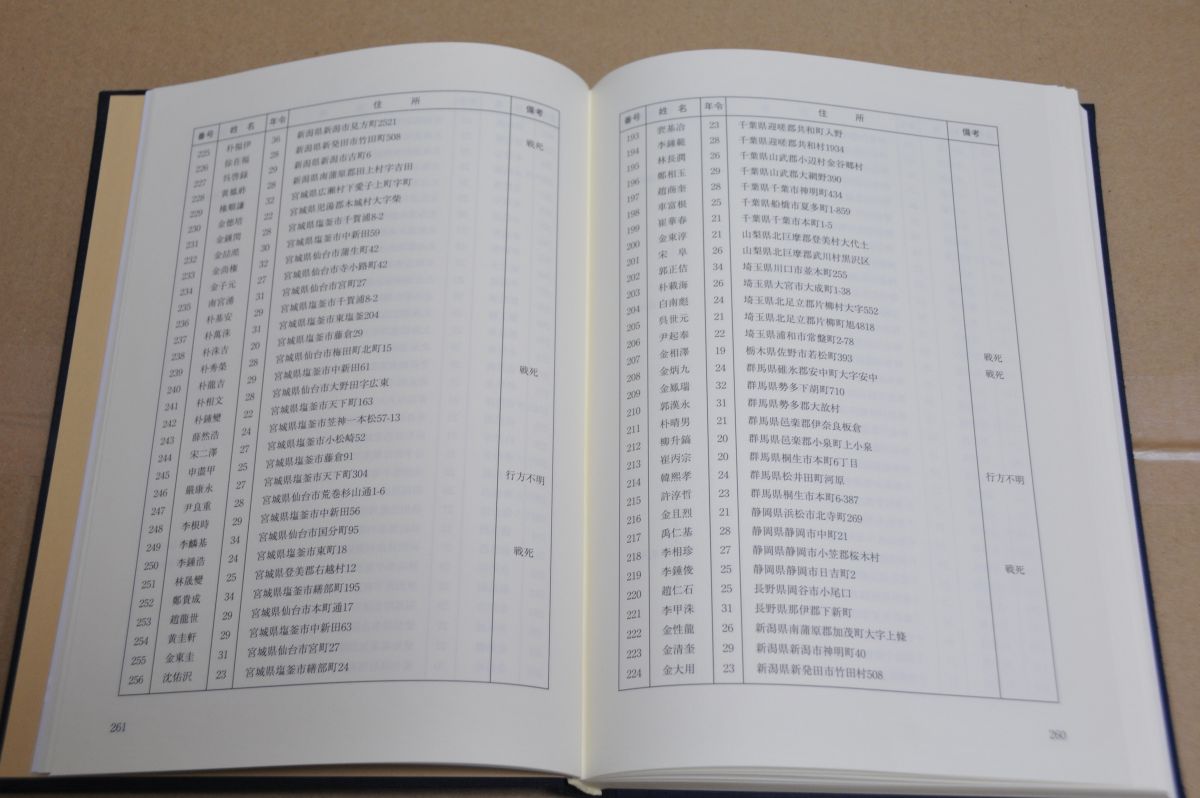 番号 姓名 年令 住所 備考
193 裵基治 23 千葉県迎嗟郡共和町入野
194 李鍾範 28 千葉県迎嗟郡共和村1934
195 林長潤 26 千葉県山武郡小辺村金谷郷村
196 鄭相玉 29 千葉県山武郡大網野390
197 趙南奎 28 千葉県千葉市神明町434
198 車富根 25 千葉県船橋市夏多町1-859
199 崔華春 21 千葉県千葉市本町1-5
200 金東淳 21 山梨県北巨摩郡登美村大代土
201 宋阜 26 山梨県北巨摩郡武川村黒沢区
202 郭正佶 34 埼玉県川口市並木町255
203 朴載海 26 埼玉県大宮市大成町1-38
204 白南彪 24 埼玉県北足立郡片柳村大字552
205 呉世元 21 埼玉県北足立郡片柳町旭4818
206 尹起奉 22 埼玉県浦和市常盤町2-78
207 金相澤 19 栃木県佐野市若松町393 戦死
208 金炳九 24 群馬県碓氷郡安中町大字安中 戦死
209 金鳳瑞 32 群馬県勢多下胡町710
210 郭漢永 31 群馬県勢多郡大故村
211 朴晴男 21 群馬県邑楽郡伊奈良板倉
212 柳升鎬 20 群馬県邑楽郡小泉町上小泉
213 崔丙宗 20 群馬県桐生市本町6丁目
214 韓熙孝 24 群馬県松井田町河原 行方不明
215 許淳哲 23 群馬県桐生市本町6-387
216 金且烈 21 静岡県浜松市北寺町269
217 禹仁基 28 静岡県静岡市中町21
218 李相珍 27 静岡県静岡市小笠郡桜木村
219 李鍾俊 25 静岡県静岡市日吉町2 戦死
220 趙仁石 25 長野県岡谷市小尾口
221 李甲洙 31 長野県那伊郡下新町
222 金性龍 26 新潟県南蒲原郡加茂町大字上條
223 金清奎 29 新潟県新潟市神明町40
224 金大用 23 新潟県新発田市竹田村508
260
番号 姓名 年令 住所 備考
225 朴福伊 36 新潟県新潟市見方町2521
226 徐在福 28 新潟県新発田市竹田町508 戦死
227 呉啓録 29 新潟県新潟市古町6
228 黄鳳祚 28 新潟県南蒲原郡田上村字吉田
229 権順謙 32 宮城県広瀬村下愛子上町字町
230 金徳培 22 宮城県児湯郡木城村大字柴
231 金鍾潤 28 宮城県塩釜市千賀浦8-2
232 30 宮城県塩釜市中新田59
233 金尚権 32 宮城県仙台市蒲生町42
234 金子元 27 宮城県仙台市寺小路町42
235 南宮湧 31 宮城県仙台市宮町27
236 朴基安 29 宮城県塩釜市千賀浦8-2
237 朴萬洙 31 宮城県塩釜市東塩釜町204
238 朴洙吉 20 宮城県塩釜市藤倉29
239 朴秀榮 28 宮城県仙台市梅田町北町15
240 朴龍吉 29 宮城県塩釜市中新田61 戦死
241 朴相文 28 宮城県仙台市大野田字広東
242 朴鍾燮 22 宮城県塩釜市天下町163
243 薛然浩 24 宮城県塩釜市笠神一本松57-13
244 宋二澤 27 宮城県塩釜市小松崎52
245 申盡甲 25 宮城県塩釜市藤倉91
246 嚴康永 27 宮城県塩釜市天下町304 行方不明
247 尹良重 28 宮城県仙台市荒巻杉山通1-6
248 李根時 29 宮城県塩釜市中新田56
249 李麟基 34 宮城県仙台市国分町95
250 李鍾浩 24 宮城県塩釜市東町18 戦死
251 林晟燮 25 宮城県登美郡右越村12
252 鄭貴成 34 宮城県塩釜市繕部町195
253 趙龍世 29 宮城県仙台市本町通17
254 黄圭軒 29 宮城県塩釜市中新田63
255 金東圭 31 宮城県仙台市宮町27
256 沈佑沢 23 宮城県塩釜市繕部町24
261